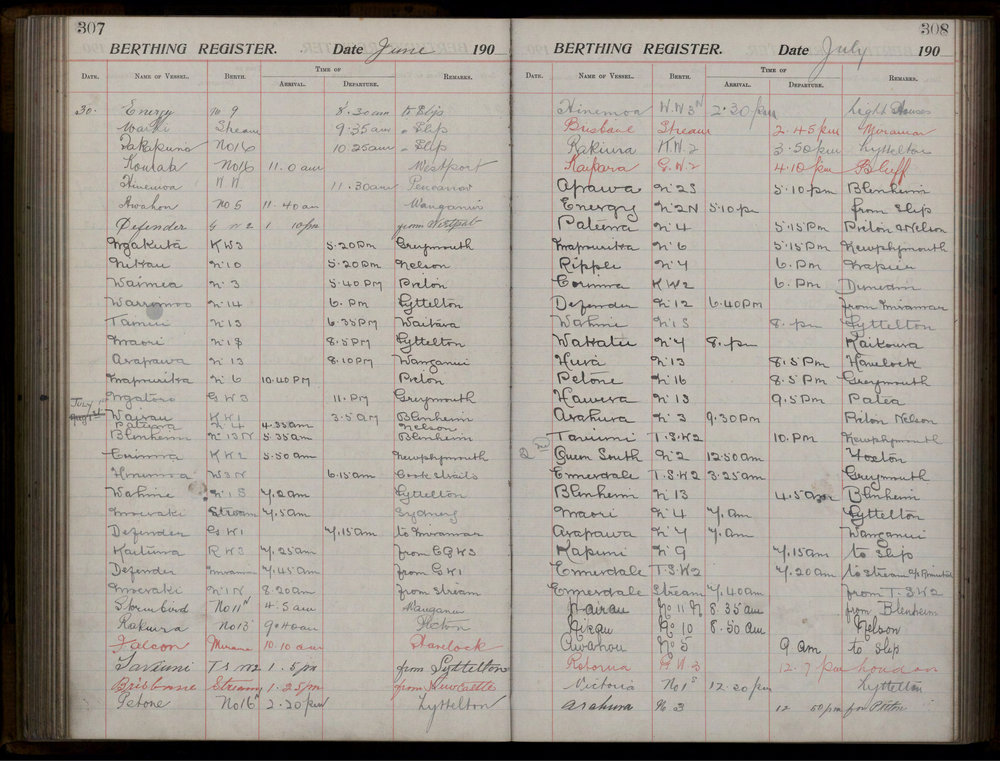 307
BERTHING REGISTER. Date June 190
DATE. NAME OF VESSEL. BERTH. TIME OF ARRIVAL. DEPARTURE. REMARKS.
30. Energy No 9 8.30am to Slip
Stream 9.35am " Slip
Takapuna No16 10.25am " Slip
No16 11.0 am Westport
Hinemoa W.W 11.30am
Awahou No 5 11.40 am Wanganui
Defender G W 2 1 10pm from
Ngakuta KW3 5.20 Pm Greymouth
Nikau No10 5.20 Pm Nelson
Waimea No 3 5.40 PM Picton
Warrimoo No14 6. Pm Lyttelton
Tainui No13 6.35 PM Waitara
Maori No 1S 8.5 PM Lyttelton
Arapawa No 13 8.10 PM Wanganui
Mapourika No 6 10.40 PM Picton
Ngatoro GW3 11. PM Greymouth
July 1st Wairau KW1 3.5 am Blenheim
Pateena No 4 4.35 am Nelson
Blenheim No 13N 5.35am Blenheim
Corinna KW2 5.50 am Newplymouth
Hinemoa W3N 6.15am Cook Straits
Wahine No 1S 7.2am Lyttelton
Moeraki Stream 7.5am Sydney
Defender GW1 7.15am to Miramar
Kaituna RW3 7.25am from
Defender Miramar 7.45am from GW1
Moeraki No 1N 8.20am from Stream
Stormbird No11N 4.5 am Wanganui
Rakiura No13 9.40am
Falcon 10.10am Havelock
Taviuni T S W2 1.5pm from Lyttelton
Brisbane Stream 1.25pm from Newcastle
Petone No16N 2.20pm Lyttelton
308
BERTHING REGISTER. Date July 190
DATE. NAME OF VESSEL. BERTH TIME OF ARRIVAL. DEPARTURE. REMARKS.
Hinemoa W.W3N 2.30pm Light Houses
Brisbane Stream 2.45pm Miramar
Rakiura K.W.2 3.50pm Lyttelton
Kaipara G.W2 4.10pm Bluff
Arawa No 2S 5.10pm Blenheim
Energy No 2N 5.10pm from Slip
Pateena No 4 5.15 Pm Picton & Nelson
Mapourika No 6 5.15 Pm Newplymouth
Ripple No 7 6. Pm Napier
Corinna KW2 6. Pm Dunedin
Defender No 12 6.40 PM from Miramar
Wahine No 1S 8. pm Lyttelton
Wakatu No 7 8. pm Kaikoura
Huia No 13 8.5 Pm Havelock
Petone No 16 8.5 Pm Greymouth
Hawera No 13 9.5 Pm Patea
Arahura No 3 9.30 PM Picton Nelson
Taviuni T.S.W2 10. PM Newplymouth
2nd Queen South No 2 12.50am Foxton
Ennerdale T.SW2 3.25am Greymouth
Blenheim No 13 4.5am Blenheim
Maori No 4 7. am Lyttelton
Arapawa No 7 7. am Wanganui
Kapuni No 9 7.15am to Slip
Ennerdale T.S.W2 7.20am to Stream
Ennerdale Stream 7.40am from T.SW2
Wairau No 11 N 8.35am from Blenheim
Nikau No 10 8.50 AM Nelson
Awahou No 5 9 am to Slip
Rotorua G.W.3 12.7pm London
Victoria No1S 12.20pm Lyttelton
Arahura No 3 12 50pm for Picton